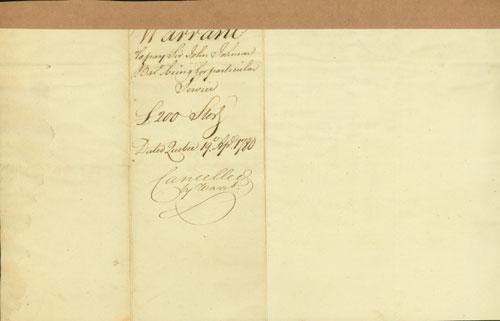 Warrant
To pay Sir John Johnson
Bart. being for particular
Service
£200 Sterg
Dated Quebec 19th Apl 1780
Cancelled
by Warrt.